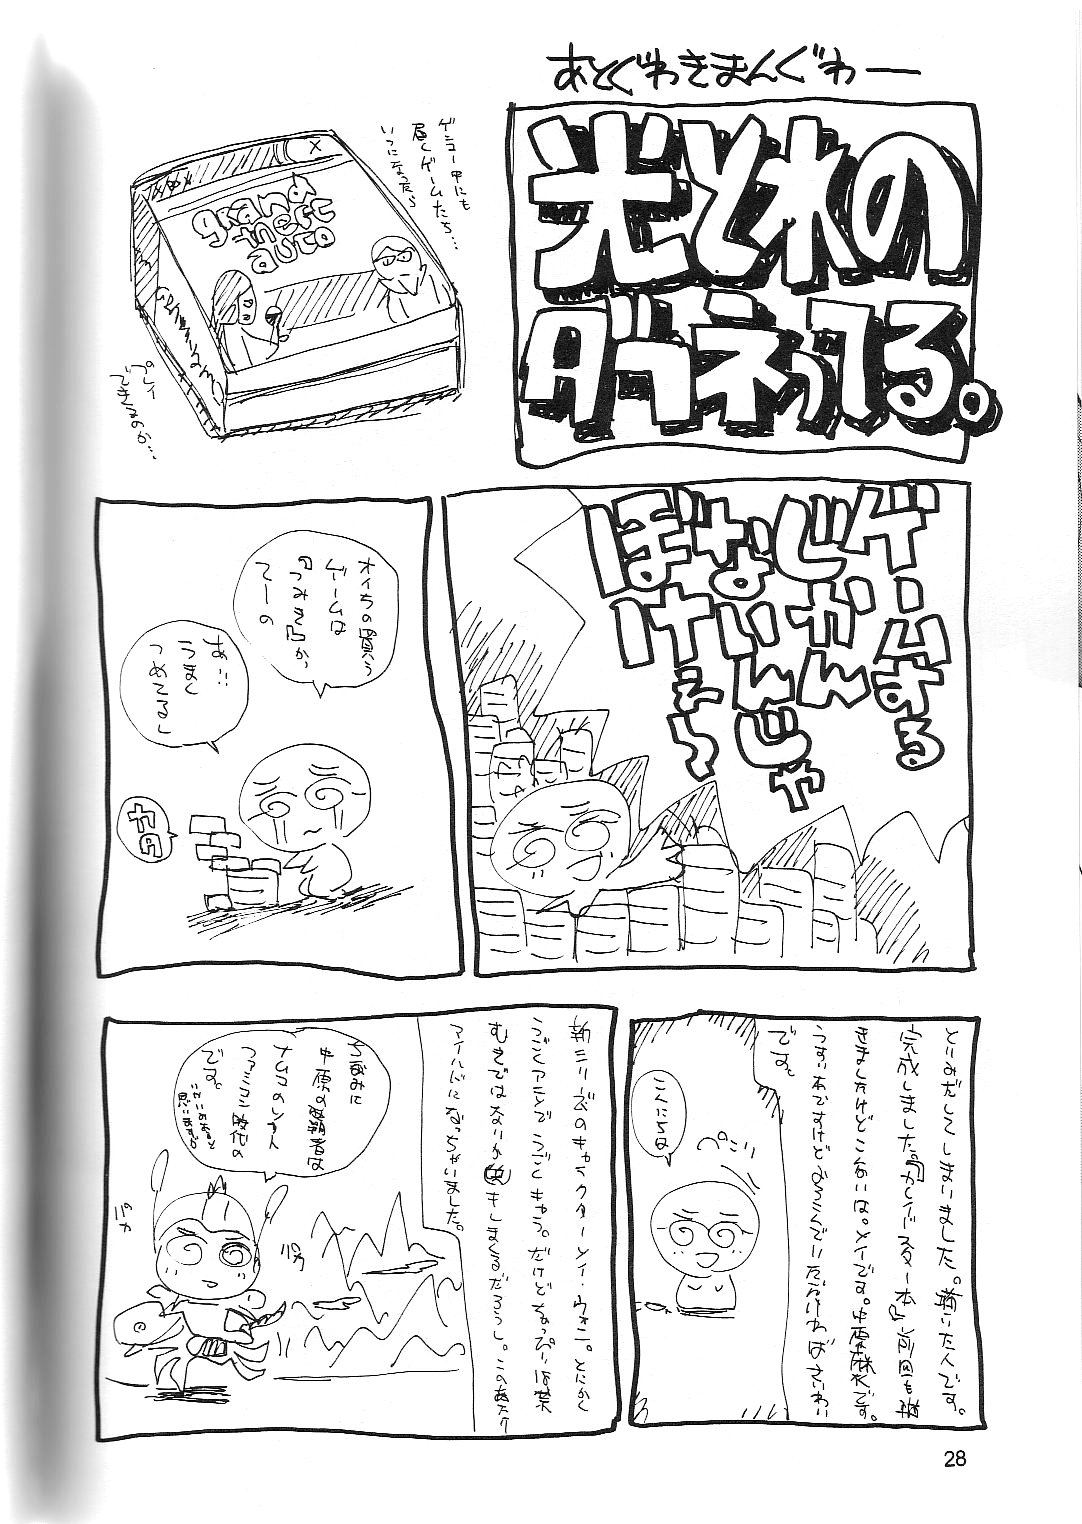 あとぐわきまんぐわー
光と水の
ダフネってる。
ゲンコー中にも
届くゲームたち…
いつになったら
プレイ
できるのか…
grand
theft
auto
ゲームする
じかんが
ないんじゃ
ぼけぇっ
オイらの買う
ゲームは
『つみき』か
てーの
あ…
うまく
つめてるし
とりみだしてしまいました。描いた人です。
完成しました。『カレイドスター本』前回も描
きましたけどこんかいは。メイです。中原麻衣です。
うすい本ですけどよろこんでいただければさいわい
です。
こんにちは
ぺこり
新シリーズのキャラクターメイ・ウォン。とにかく
うごくアニメでうごくキャラ。だけどもっぴり
むきではないか
アイルドになっちゃいました。
ちなみに
中原の覇者は
ナムコの
ファミコン時代の
です。
パカ
パカ
28